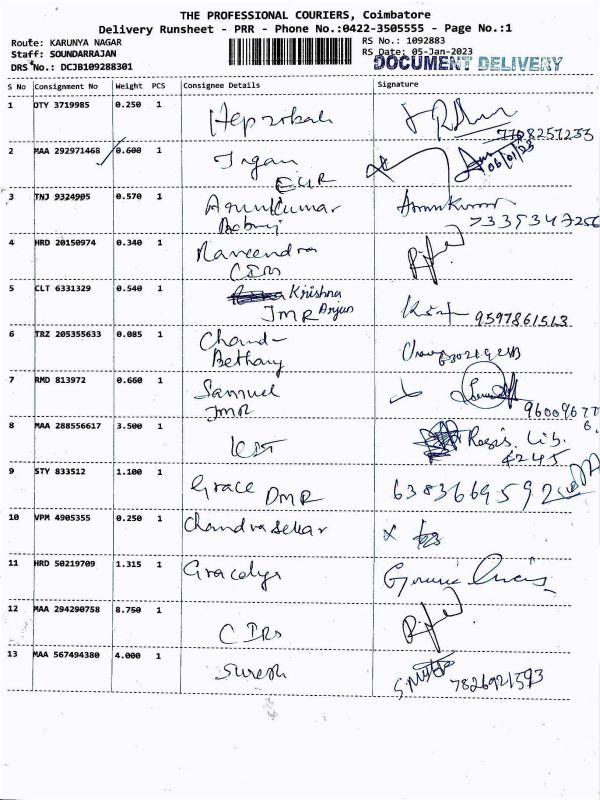 THE PROFESSIONAL COURIERS, Coimbatore
Delivery Runsheet - PRR - Phone No.:0422-3505555 - Page No.:1
Route: KARUNYA NAGAR
RS No.: 1092883
Staff: SOUNDARRAJAN
RS Date: 05-Jan-2023
DRS No.: DCJB109288301
DOCUMENT DELIVERY
S No Consignment No Weight PCS Consignee Details Signature
1 OTY 3719985 0.250 1 Hepzibah
7708257233
2 MAA 292971468 0.600 1
06/01/23
3 TNJ 9324905 0.570 1 Arunkumar Arunkumar
7339347256
4 HRD 20150974 0.340 1 Raveendra
CIRs
5 CLT 6331329 0.540 1 Krishna
JMR Arjun 9597861513
6 TRZ 205355633 0.085 1 Chand-
Bethany
7 RMD 813972 0.660 1 Samuel
JMR
8 MAA 288556617 3.500 1
4245
9 STY 833512 1.100 1 Grace DMR 6383669592
10 VPM 4905355 0.250 1 Chandrasekar
11 HRD 50219709 1.315 1
12 MAA 294290758 8.750 1 CIRs
13 MAA 567494380 4.000 1 Suresh
7826921593